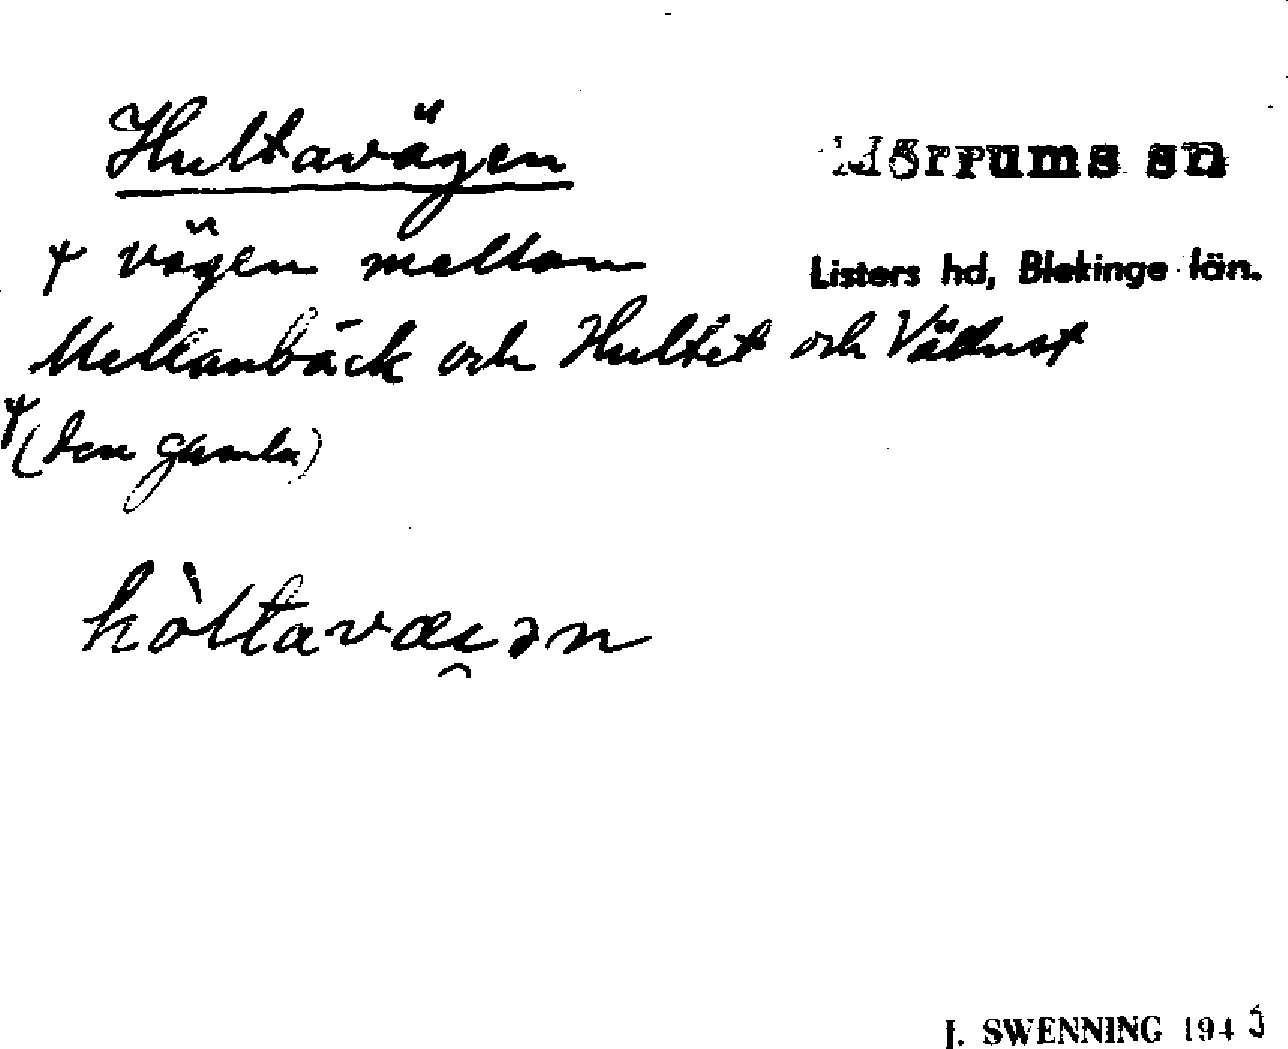 Hultavägen
Mörrums sn
vägen mellan
Listers hd, Blekinge län.
Mellanbäck och Hultet och
(den gamla)
hòltavæıən
J. SWENNING 1943